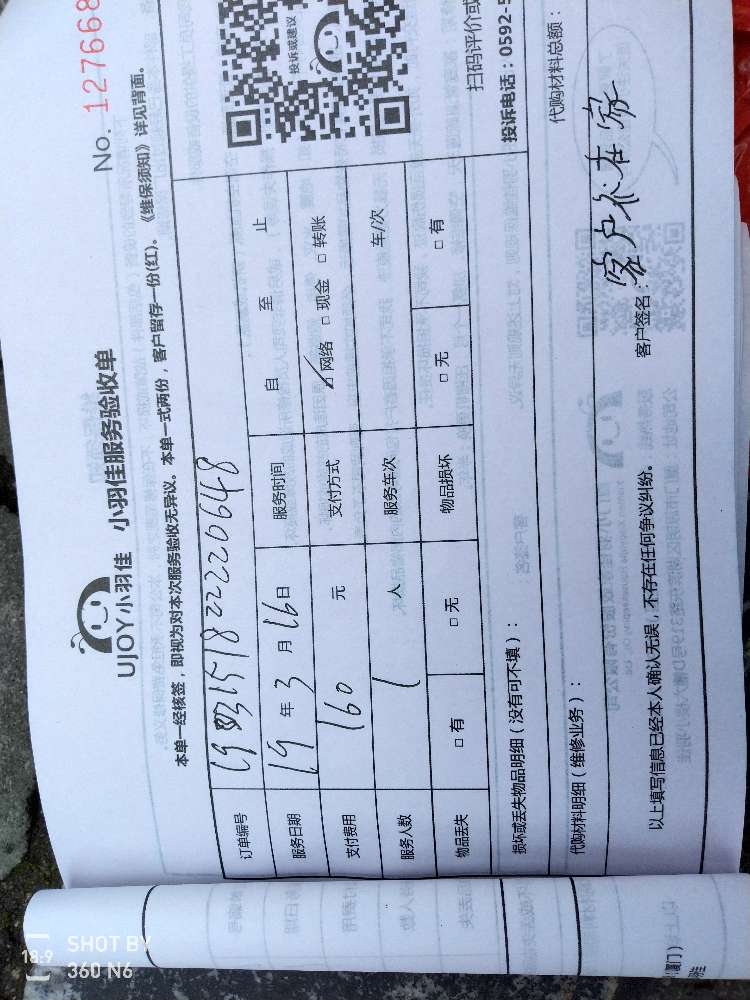 No. 127668
UJOY小羽佳 小羽佳服务验收单
本单一经核签，即视为对本次服务验收无异议。本单一式两份，客户留存一份(红)。《维保须知》详见背面。
订单编号
服务日期 19 年 3 月 16 日 服务时间 自 至 止
支付费用 160 元 支付方式 ☑网络 □现金 □转账
服务人数 1 人 服务车次 车/次
物品丢失 □有 □无 物品损坏 □无 □有
投诉或建议
扫码评价或
投诉电话：0592-5
损坏或丢失物品明细（没有可不填）：
代购材料明细（维修业务）： 代购材料总额：
以上填写信息已经本人确认无误，不存在任何争议纠纷。 客户签名：客户不在家
SHOT BY
360 N6
18:9